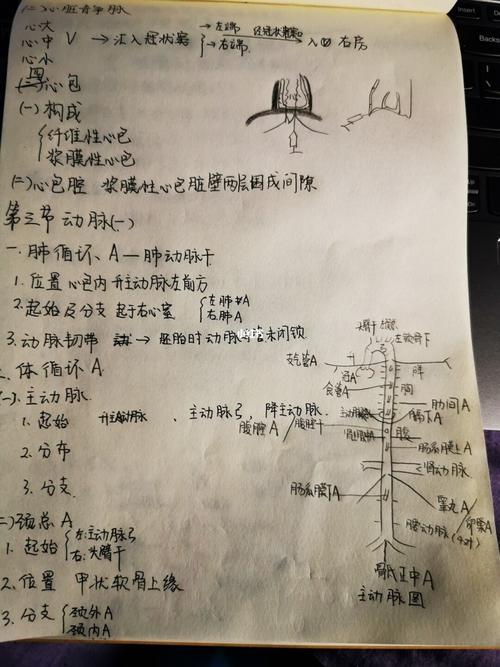 (二)心脏静脉
心大
心中 V → 汇入冠状窦 → 左端 经冠状窦口 入 右房
→ 右端
心小
心包
(一)构成
纤维性心包
浆膜性心包
(二)心包腔 浆膜性心包脏壁两层围成间隙
第三节 动脉(一)
一.肺循环、A — 肺动脉干
1.位置 心包内 升主动脉左前方
2.起始及分支 起于右心室 左肺A
右肺A
3.动脉韧带 → 胚胎时动脉导管末闭锁
二.体循环A.
(一).主动脉
1.起始 升主动脉、主动脉弓,降主动脉.
2.分布
3.分支.
(二)颈总A
1.起始 左:主动脉弓
右:头臂干
2.位置 甲状软骨上缘
3.分支 颈外A
颈内A
左锁骨下
支气管A
升
降
冠A
食管A
胸
肋间A
膈下A
腹腔A
腹腔干
腹
肠系膜上A
肾动脉
肠系膜下A
睾丸A
卵巢A
腰动脉(4对)
骶正中A
主动脉图